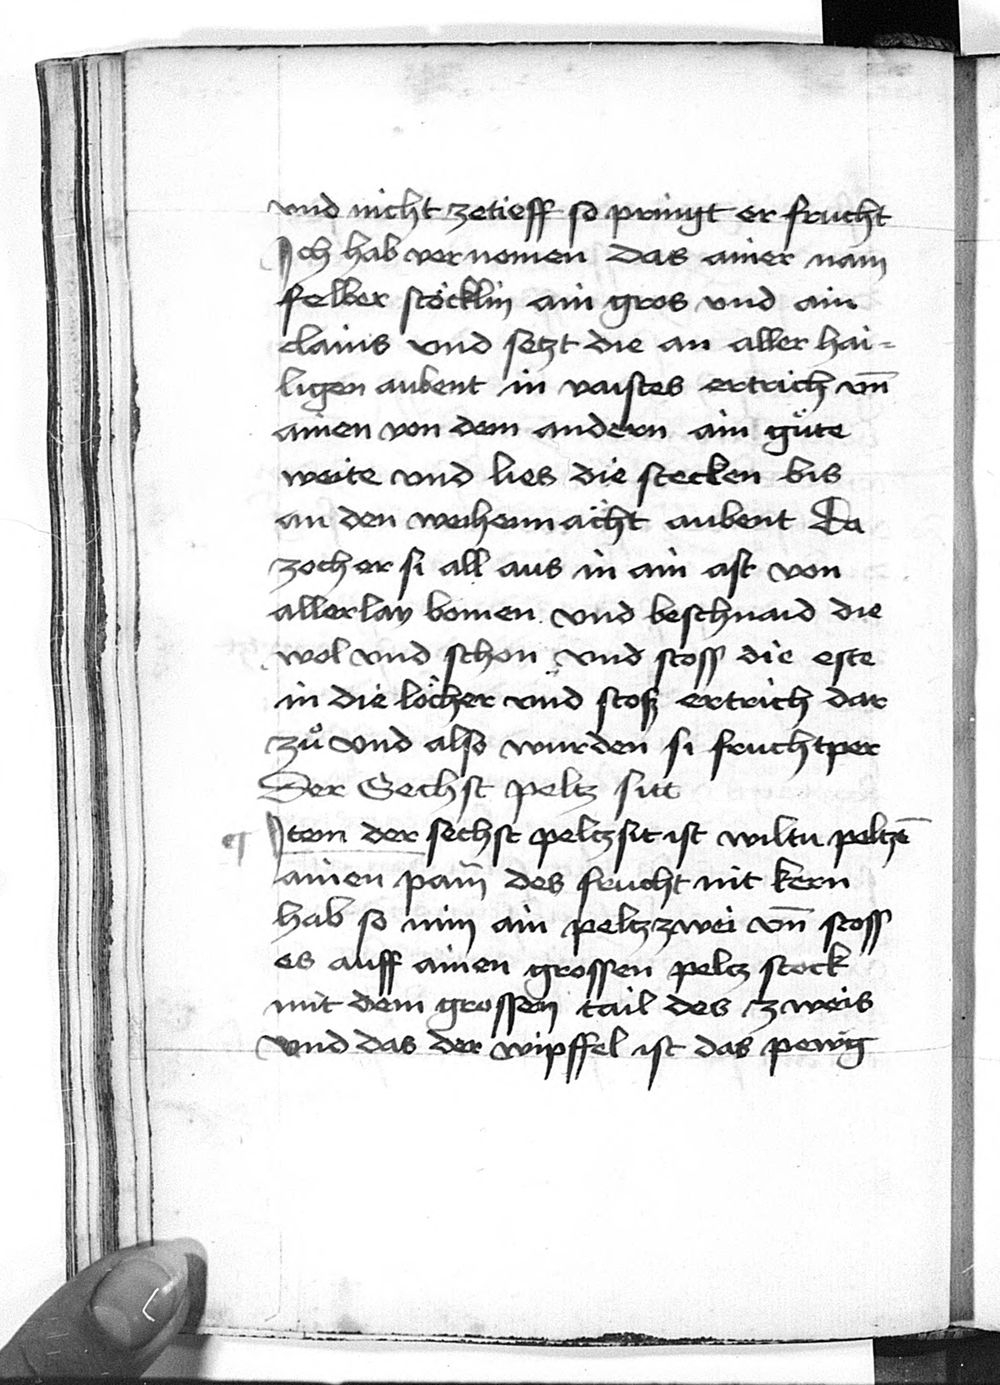 vnd nicht zetieff so pringt er frucht
Ich hab vernomen das ainer nam
felber stöcklin ain gros vnd ain
clains vnd setzt die an aller hai=
ligen aubent in vaistes ertrich vn̄
ainen von dem andern ain gůte
weite vnd lies die stecken bis
an den weihennächt aubent Da
zoch er si all aus in ain ast von
allerlay bomen vnd beschnaid die
wol vnd schon vnd stoss die este
in die löcher vnd stosz ertrich dar
zů vnd also wurden si fruchtper
Der Sechst peltz sitt
¶ Item der sechst peltzsit ist wiltu peltzē
ainen pam̄ des frucht nit kern
hab so nim ain peltzzwei vn̄ stoss
es auff ainen grossen peltz stock
mit dem grossen tail des zweis
vnd das der wipffel ist das pewg